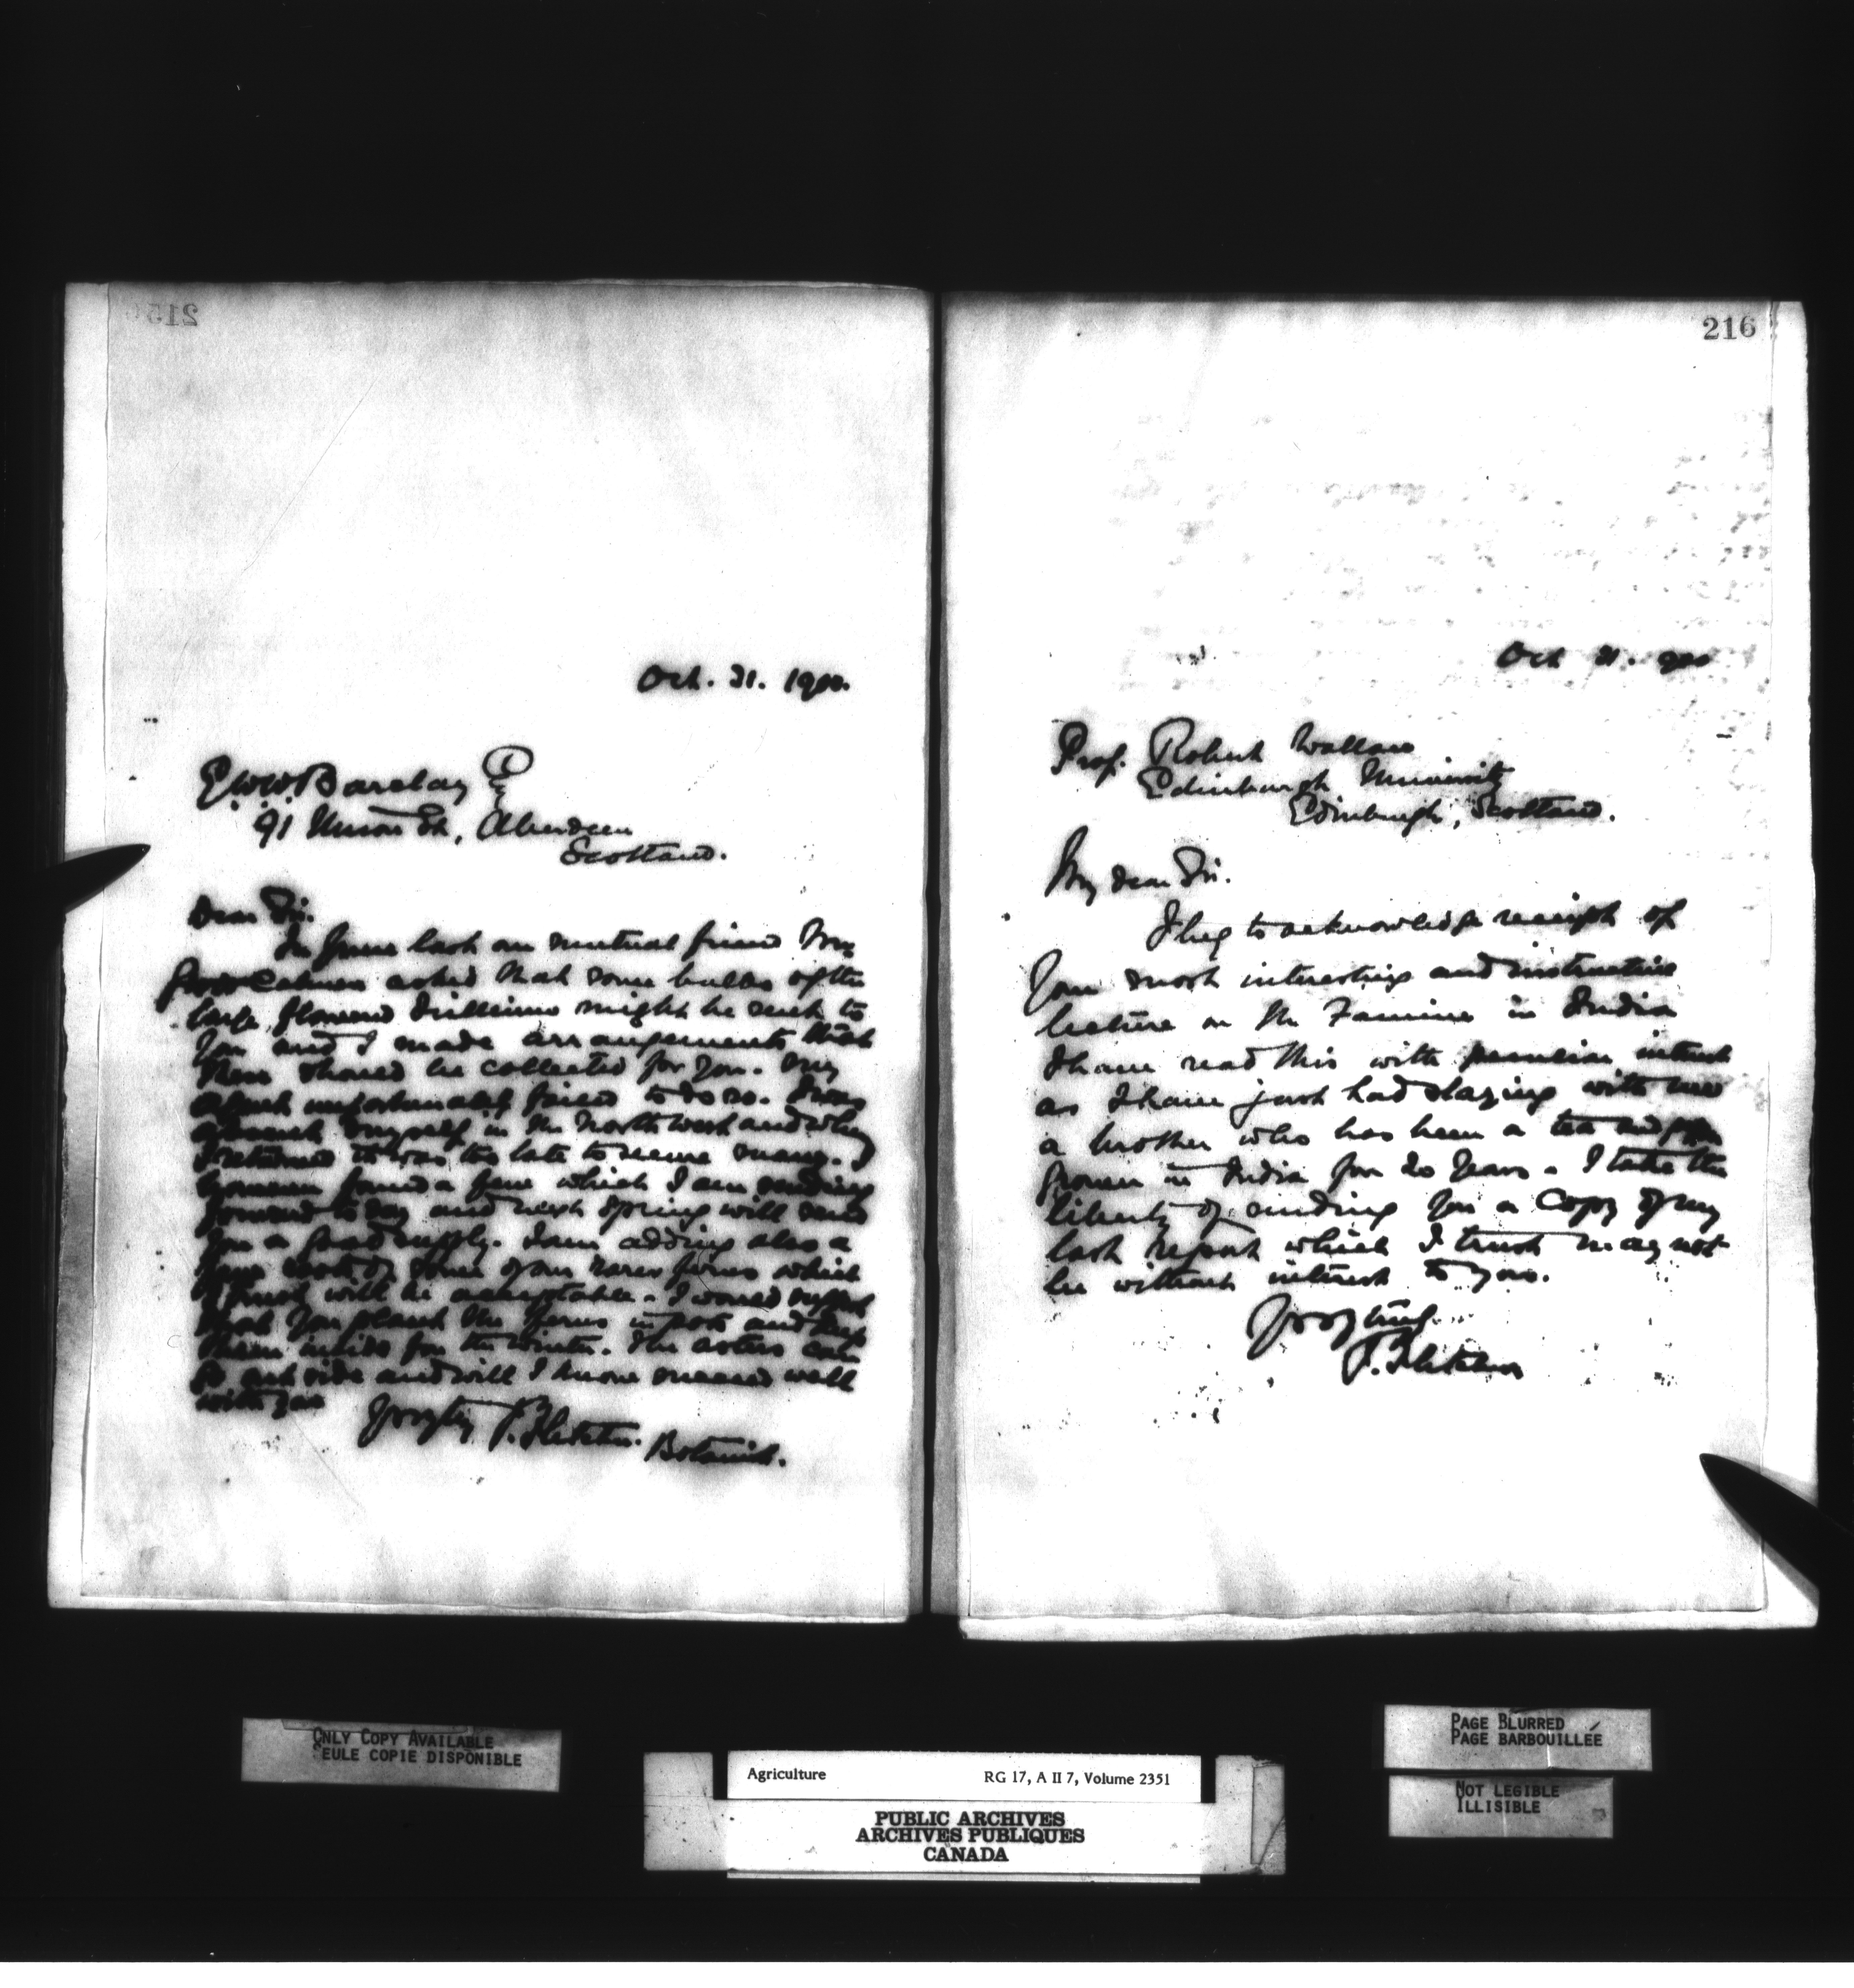 215
Oct. 31. 1900.
E.W.W. Barclay Esq
91 Union St., Aberdeen
Scotland.
Dear Sir.
In June last our mutual friend Mr
asked that some bulbs of the
large flowered Trilliums might be sent to
you and I made arrangements that
these should be collected for you. My
unfortunately failed to do so. I was
myself in the North west and when
I returned it was too late to many. I
however found a few which I am sending
forward to day and next Spring will send
you a good supply. I am adding also a
few roots of some of our rarer ferns which
I trust will be acceptable. I would suggest
that you plant the ferns in pots and keep
them inside for the winter. The asters can
go out side and will I know succeed well
with you
Yrs try J. Fletcher.
Botanist.
216
Oct 31. 1900
Prof. Robert Wallace
Edinburgh University
Edinburgh, Scotland.
My dear Sir.
I beg to acknowledge receipt of
your most interesting and instructive
lecture on the Famine in India
I have read this with peculiar interest
as I have just had staying with me
a brother who has been a tea and
grower in India for 20 years. I take the
liberty of sending you a copy of my
last report which I trust may not
be without interest to you.
Yrs try
J. Fletcher
ONLY COPY AVAILABLE
SEULE COPIE DISPONIBLE
Agriculture RG 17, A II 7, Volume 2351
PUBLIC ARCHIVES
ARCHIVES PUBLIQUES
CANADA
PAGE BLURRED
PAGE BARBOUILLÉE
NOT LEGIBLE
ILLISIBLE